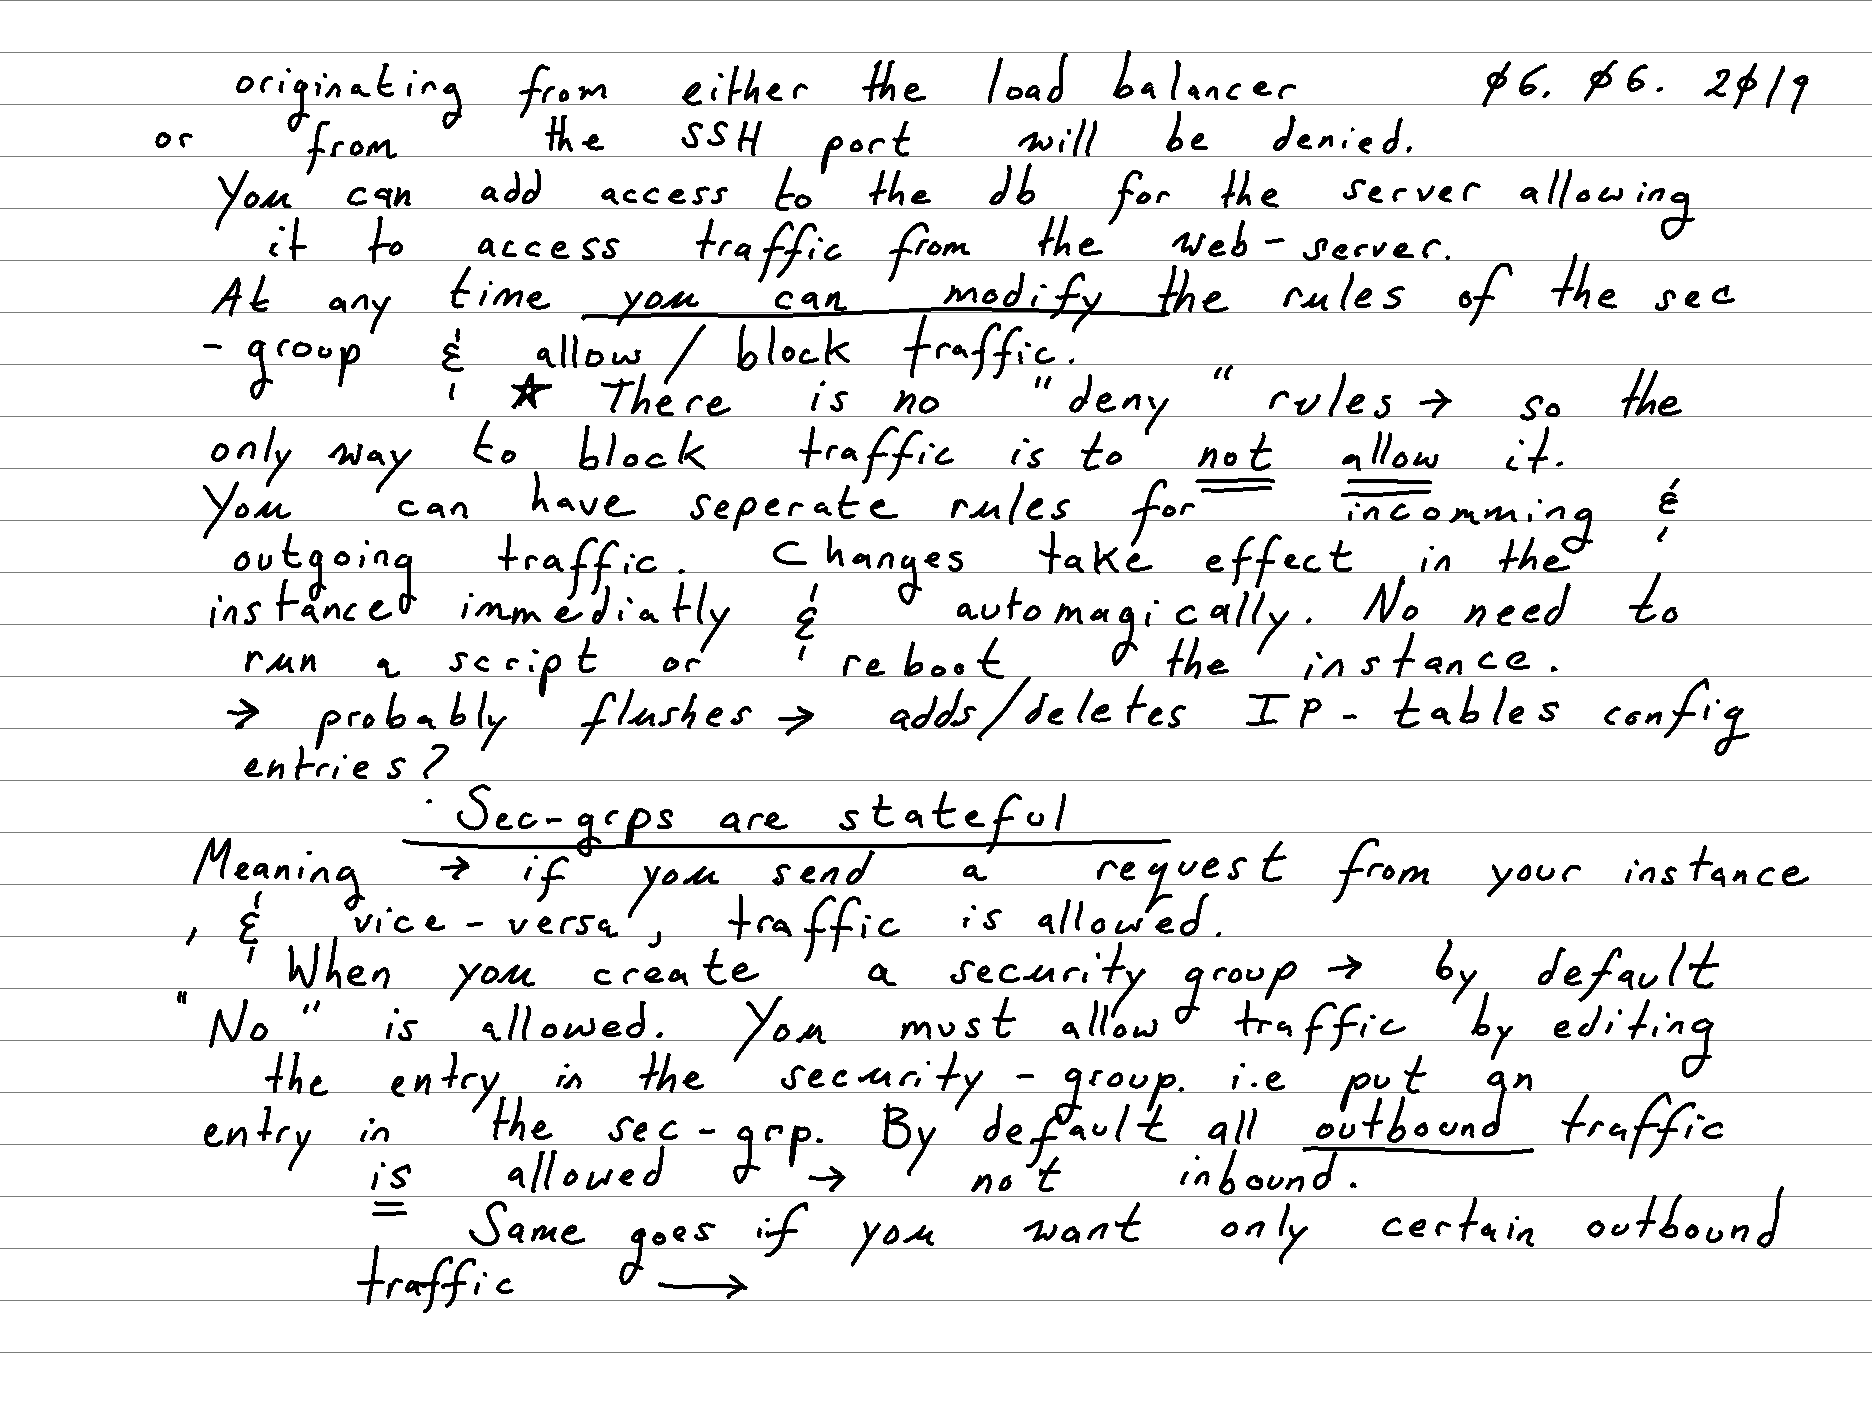 originating from either the load balancer ø6. ø6. 2ø19
or from the SSH port will be denied.
You can add access to the db for the server allowing
it to access traffic from the web-server.
At any time you can modify the rules of the sec
- group & allow / block traffic.
★ There is no "deny" rules → so the
only way to block traffic is to not allow it.
You can have seperate rules for incomming &
outgoing traffic. Changes take effect in the
instance immediatly & automagically. No need to
run a script or reboot the instance.
→ probably flushes → adds/deletes IP-tables config
entries?
Sec-grps are stateful
Meaning → if you send a request from your instance
, & vice-versa, traffic is allowed.
When you create a security group → by default
"No" is allowed. You must allow traffic by editing
the entry in the security-group. i.e put an
entry in the sec-grp. By default all outbound traffic
is allowed → not inbound.
Same goes if you want only certain outbound
traffic →